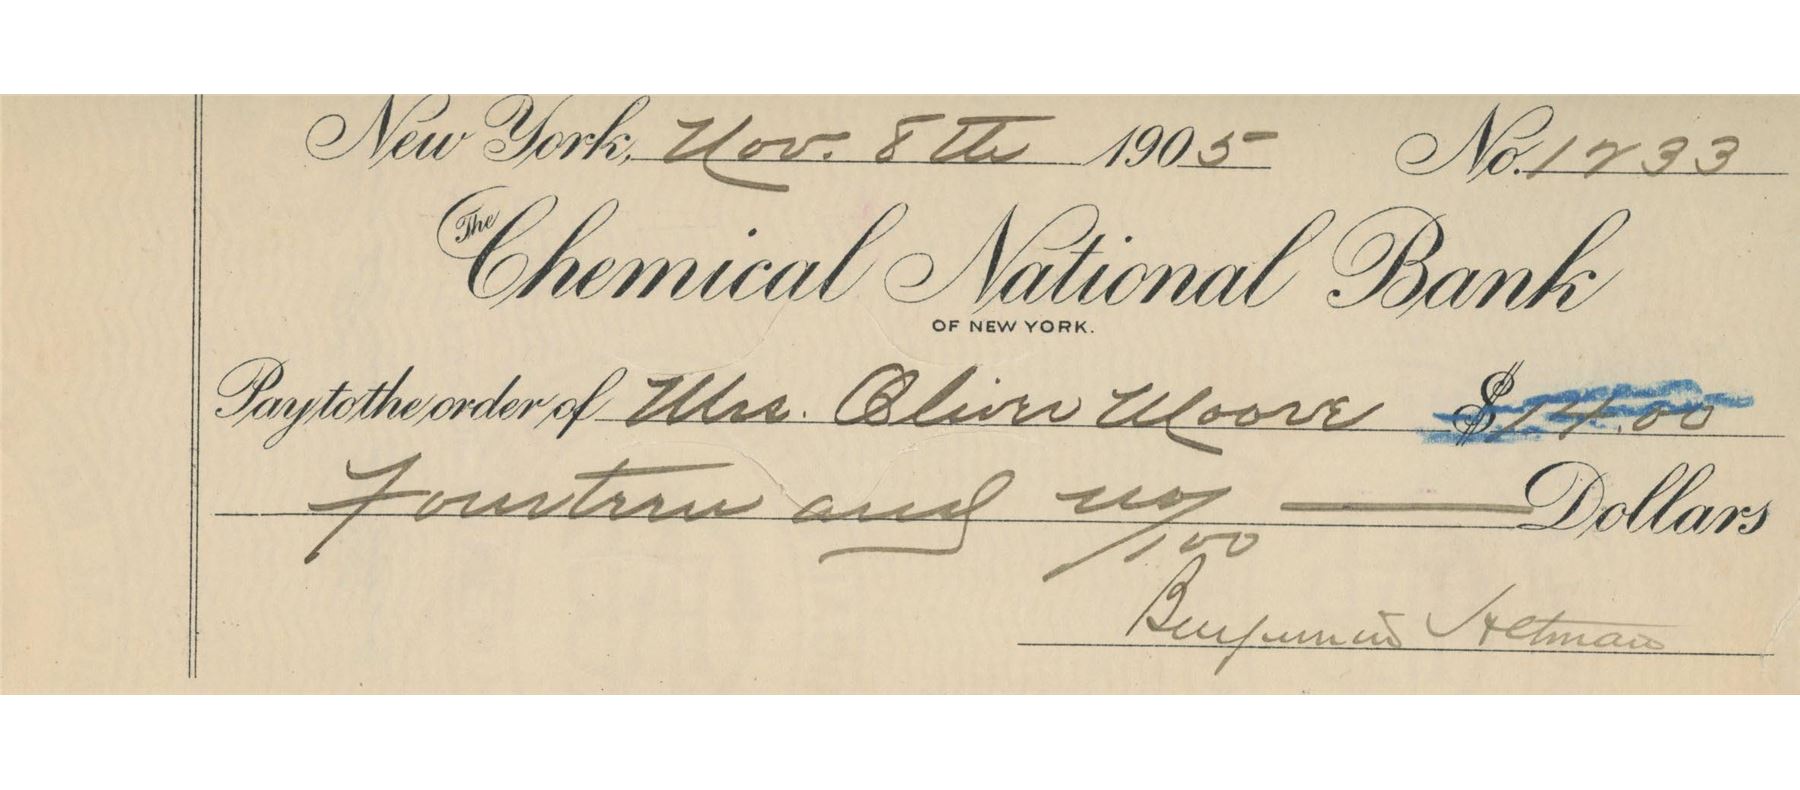 New York, Nov. 8th 1905 No. 1733
The Chemical National Bank
OF NEW YORK.
Pay to the order of Mrs. Oliver Moore $14.00
Fourteen and no/100 Dollars
Benjamin Altman